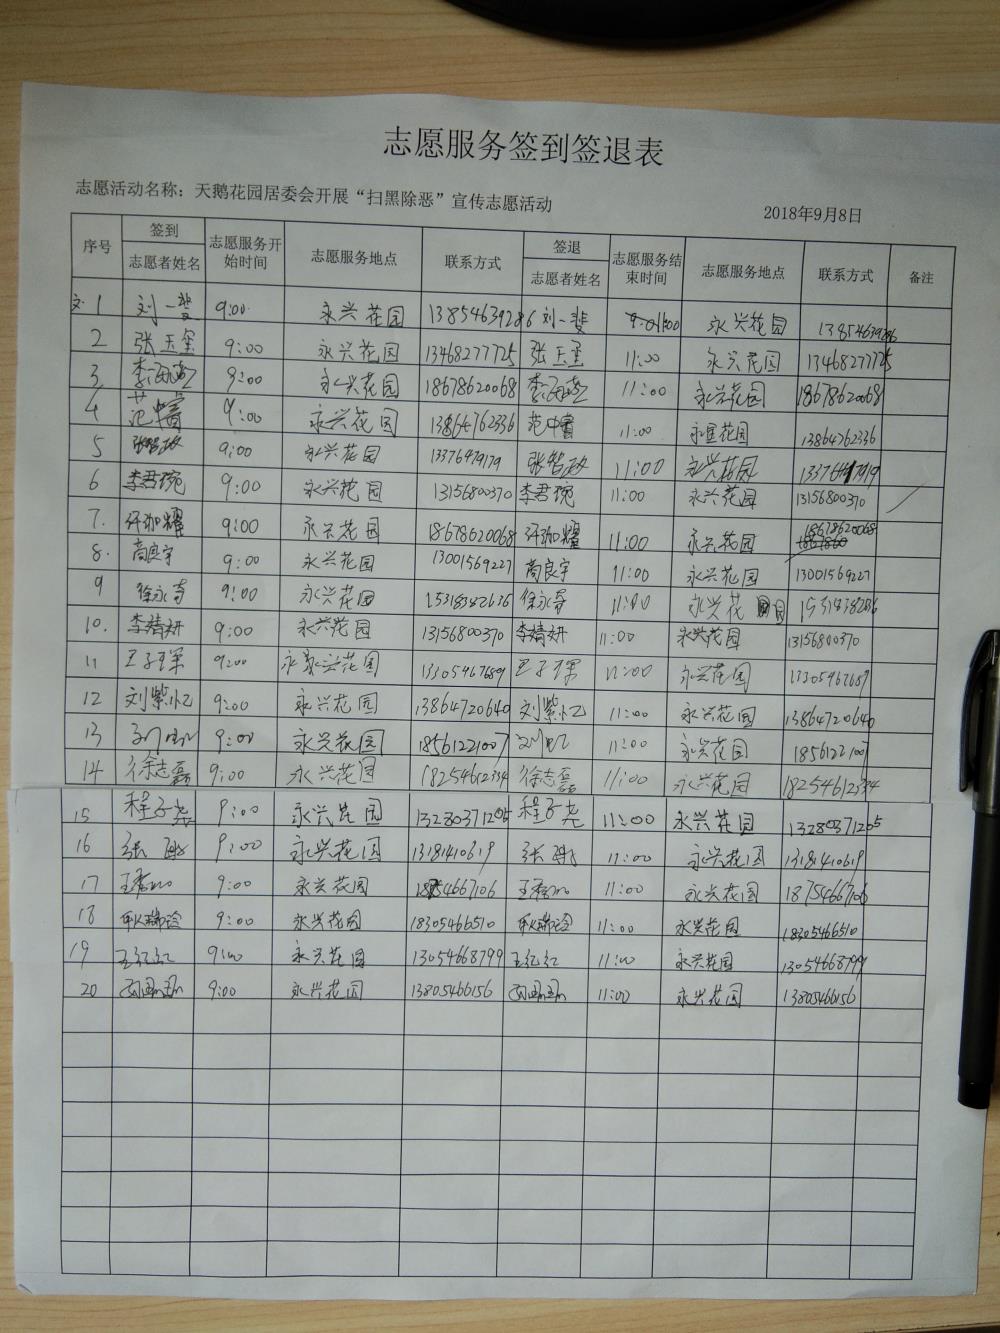 志愿服务签到签退表
志愿活动名称：天鹅花园居委会开展“扫黑除恶”宣传志愿活动 2018年9月8日
序号 签到 志愿者姓名 志愿服务开始时间 志愿服务地点 联系方式 签退 志愿者姓名 志愿服务结束时间 志愿服务地点 联系方式 备注
1 刘一斐 9:00 永兴花园 13854639286 刘一斐 11:00 永兴花园 13854639286
2 张玉玺 9:00 永兴花园 13468277725 张玉玺 11:00 永兴花园 13468277725
3 9:00 永兴花园 18678620068 11:00 永兴花园 18678620068
4 范中睿 9:00 永兴花园 13864762336 范中睿 11:00 花园 13864762336
5 张智政 9:00 永兴花园 13376479179 张智政 11:00 永兴花园
6 李君琬 9:00 永兴花园 13156800370 李君琬 11:00 永兴花园 13156800370
7. 9:00 永兴花园 18678620068 11:00 永兴花园 18678620068
8. 商良宇 9:00 永兴花园 13001569227 商良宇 11:00 永兴花园 13001569227
9 徐永奇 9:00 永兴花园 15318342636 徐永奇 11:00 永兴花园
10. 李婧妍 9:00 永兴花园 13156800370 李婧妍 11:00 永兴花园 13156800370
11 9:00 永兴花园 13305467689 永兴花园 13305467689
12 刘紫忆 9:00 永兴花园 13864720640 刘紫忆 11:00 永兴花园 13864720640
13 9:00 永兴花园 18561221007 11:00 永兴花园 18561221007
14 徐志磊 9:00 永兴花园 18254612334 徐志磊 11:00 永兴花园 18254612334
15 程子尧 9:00 永兴花园 13280371205 程子尧 11:00 永兴花园 13280371205
16 张 9:00 永兴花园 13181410619 张 11:00 永兴花园 13181410619
17 9:00 永兴花园 18754667106 11:00 永兴花园 18754667106
18 耿瑞 9:00 永兴花园 18305466510 耿瑞 11:00 永兴花园 18305466510
19 王红红 9:00 永兴花园 13054668799 王红红 11:00 永兴花园 13054668799
20 9:00 永兴花园 13805466156 11:00 永兴花园 13805466156